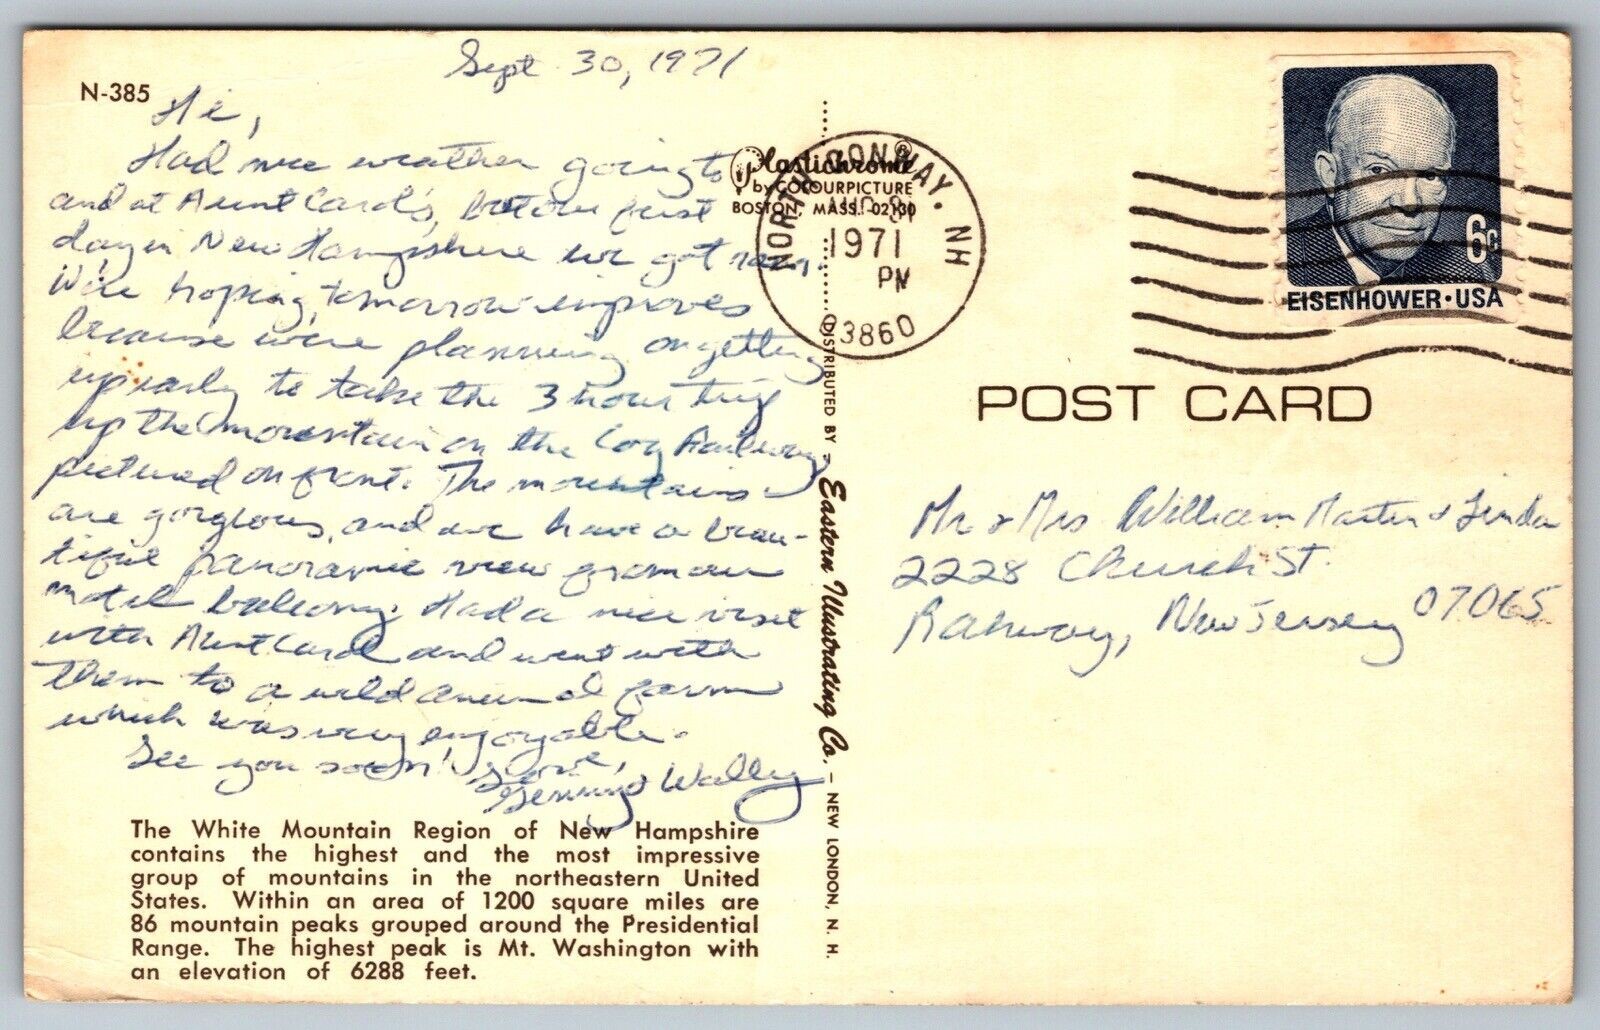 Sept 30, 1971
N-385
Hi,
Had nice weather going to
and at Aunt Carol's, but our first
day in New Hampshire we got rain.
We're hoping tomorrow improves
because we're planning on getting
up early to take the 3 hour trip
up the mountain on the Cog Railway
pictured on front. The mountains
are gorgeous, and we have a beau-
tiful panoramic view from our
motel balcony. Had a nice visit
with Aunt Carol and went with
them to a wild animal farm
which was very enjoyable.
See you soon! Love,
& Wally
The White Mountain Region of New Hampshire
contains the highest and the most impressive
group of mountains in the northeastern United
States. Within an area of 1200 square miles are
86 mountain peaks grouped around the Presidential
Range. The highest peak is Mt. Washington with
an elevation of 6288 feet.
Plastichrome ®
by COLOURPICTURE
BOSTON, MASS. 02130
DISTRIBUTED BY - Eastern Illustrating Co. - NEW LONDON, N. H.
NORTH CONWAY. NH
1971
PM
03860
6c
EISENHOWER·USA
POST CARD
Mr & Mrs William Martin & Linda
2228 Church St.
Rahway, New Jersey 07065